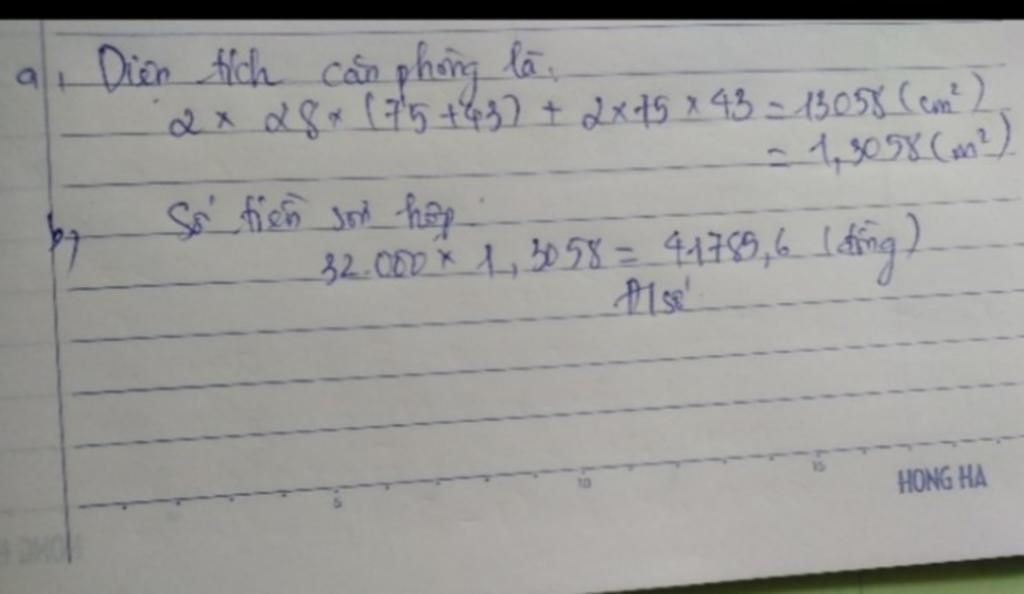 a, Diện tích căn phòng là:
2 × 28 × (75 + 43) + 2 × 75 × 43 = 13058 (cm²)
= 1,3058 (m²)
b, Số tiền sơn hộp
32.000 × 1,3058 = 41785,6 (đồng)
Đ/số
5 10 15
HONG HA